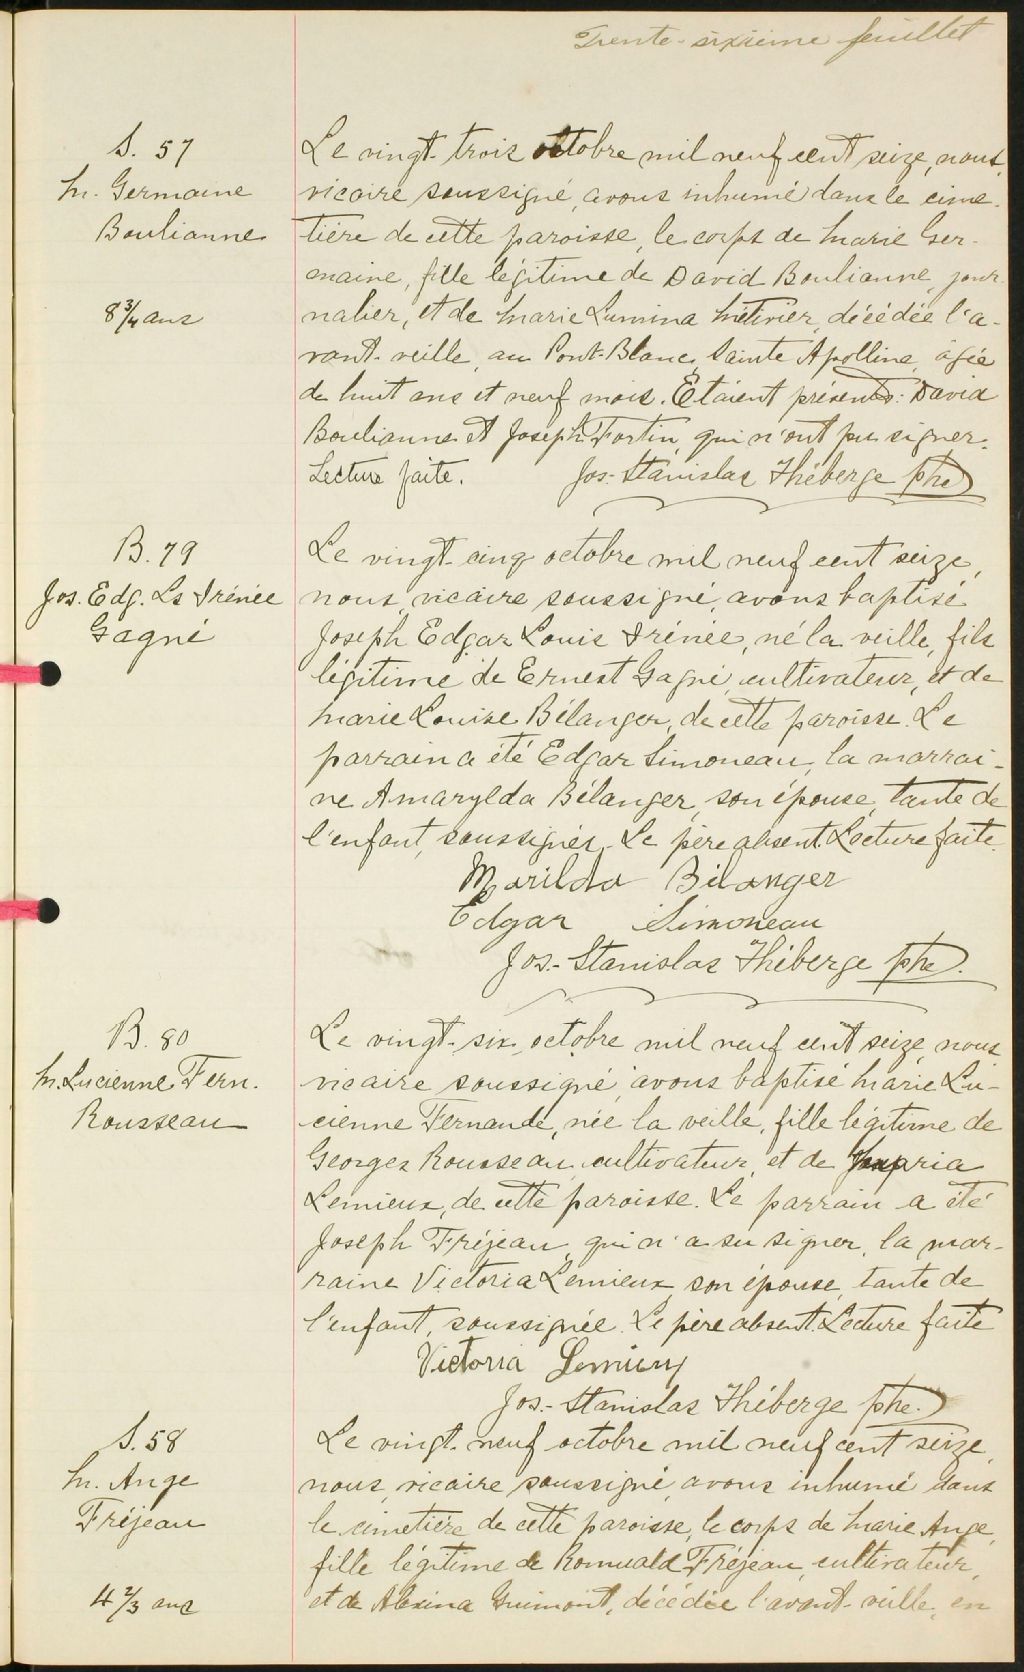 Trente-sixième feuillet
S. 57
M. Germaine
Boulianne
8 3/4 ans
Le vingt-trois octobre mil neuf cent seize, nous,
vicaire soussigné, avons inhumé dans le cime-
tière de cette paroisse, le corps de Marie Ger-
maine, fille légitime de David Boulianne, jour-
nalier, et de Marie Lumina Métivier, décédée l'a-
vant-veille, au Pont-Blanc, Sainte Apolline, âgée
de huit ans et neuf mois. Etaient présents: David
Boulianne et Joseph Fortin, qui n'ont pu signer.
Lecture faite. Jos-Stanislas Théberge ptre
B. 79
Jos. Edg. Ls Irénée
Gagné
Le vingt-cinq octobre mil neuf cent seize,
nous, vicaire soussigné, avons baptisé
Joseph Edgar Louis Irénée, né la veille, fils
légitime de Ernest Gagné, cultivateur, et de
Marie Louise Bélanger, de cette paroisse. Le
parrain a été Edgar Simoneau, la marrai-
ne Amarylda Bélanger, son épouse, tante de
l'enfant, soussignés. Le père absent. Lecture faite.
Marilda Bélanger
Edgar Simoneau
Jos.-Stanislas Théberge ptre.
B. 80
M. Lucienne Fern.
Rousseau
Le vingt-six octobre mil neuf cent seize, nous
vicaire soussigné, avons baptisé Marie Lu-
cienne Fernande, née la veille, fille légitime de
Georges Rousseau, cultivateur, et de
Lemieux, de cette paroisse. Le parrain a été
Joseph Fréjeau, qui n'a su signer, la mar-
raine Victoria Lemieux, son épouse, tante de
l'enfant, soussignée. Le père absent. Lecture faite
Victoria Lemieux
Jos.-Stanislas Théberge ptre.
S. 58
M. Ange
Fréjeau
4 2/3 ans
Le vingt-neuf octobre mil neuf cent seize,
nous, vicaire soussigné, avons inhumé dans
le cimetière de cette paroisse, le corps de Marie Ange,
fille légitime de Romuald Fréjeau, cultivateur,
et de Alexina Guimont, décédée l'avant-veille, en